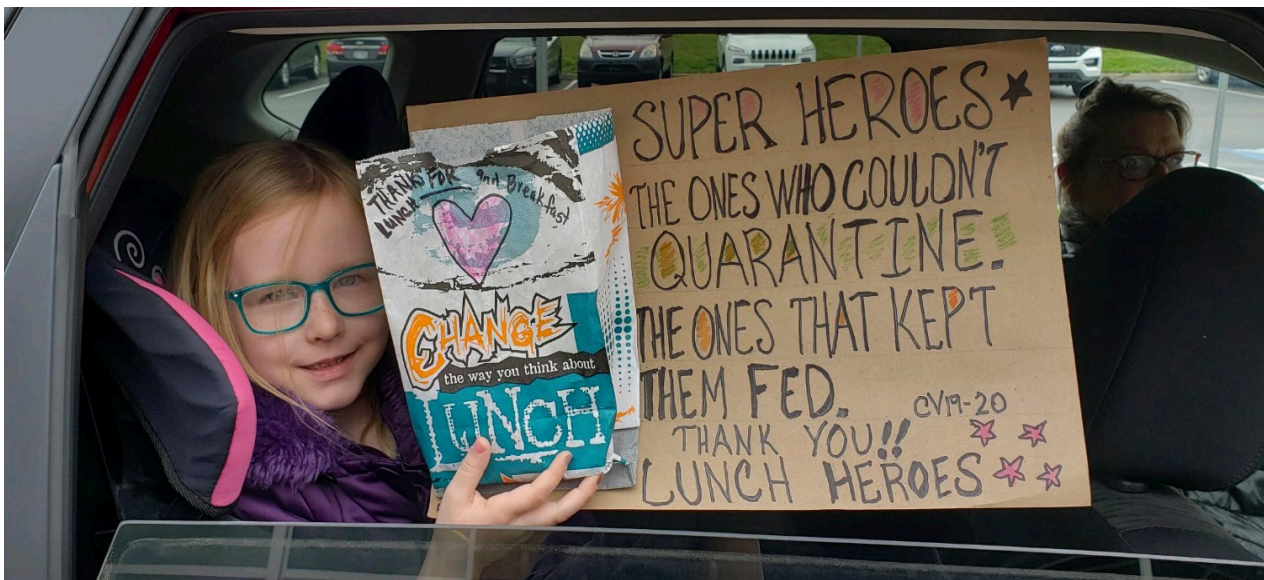 THANKS FOR
LUNCH and Breakfast
CHANGE
the way you think about
LUNCH
SUPER HEROES
THE ONES WHO COULDN'T
QUARANTINE.
THE ONES THAT KEPT
THEM FED.
CV19-20
THANK YOU!!
LUNCH HEROES